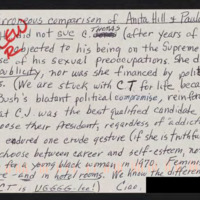 erroneous comparison of Anita Hill & Paula
NEW
did not sue C. THOMAS (after years of
objected to his being on the Supreme
se of his sexual preoccupations. She d
publicity, nor was she financed by polit
s. (We are stuck with CT for life becau
Bush's blatant political compromise, reinfor
at C.J. was the best qualified candidate
oose their president, regardless of addictio
endured one crude gesture (if she is truthful
choose between career and self-esteem, nor
for a young black woman in 1970. Feminis
re - and in hotel rooms. We know the differen
CT is UGGGG-lee! Ciao,